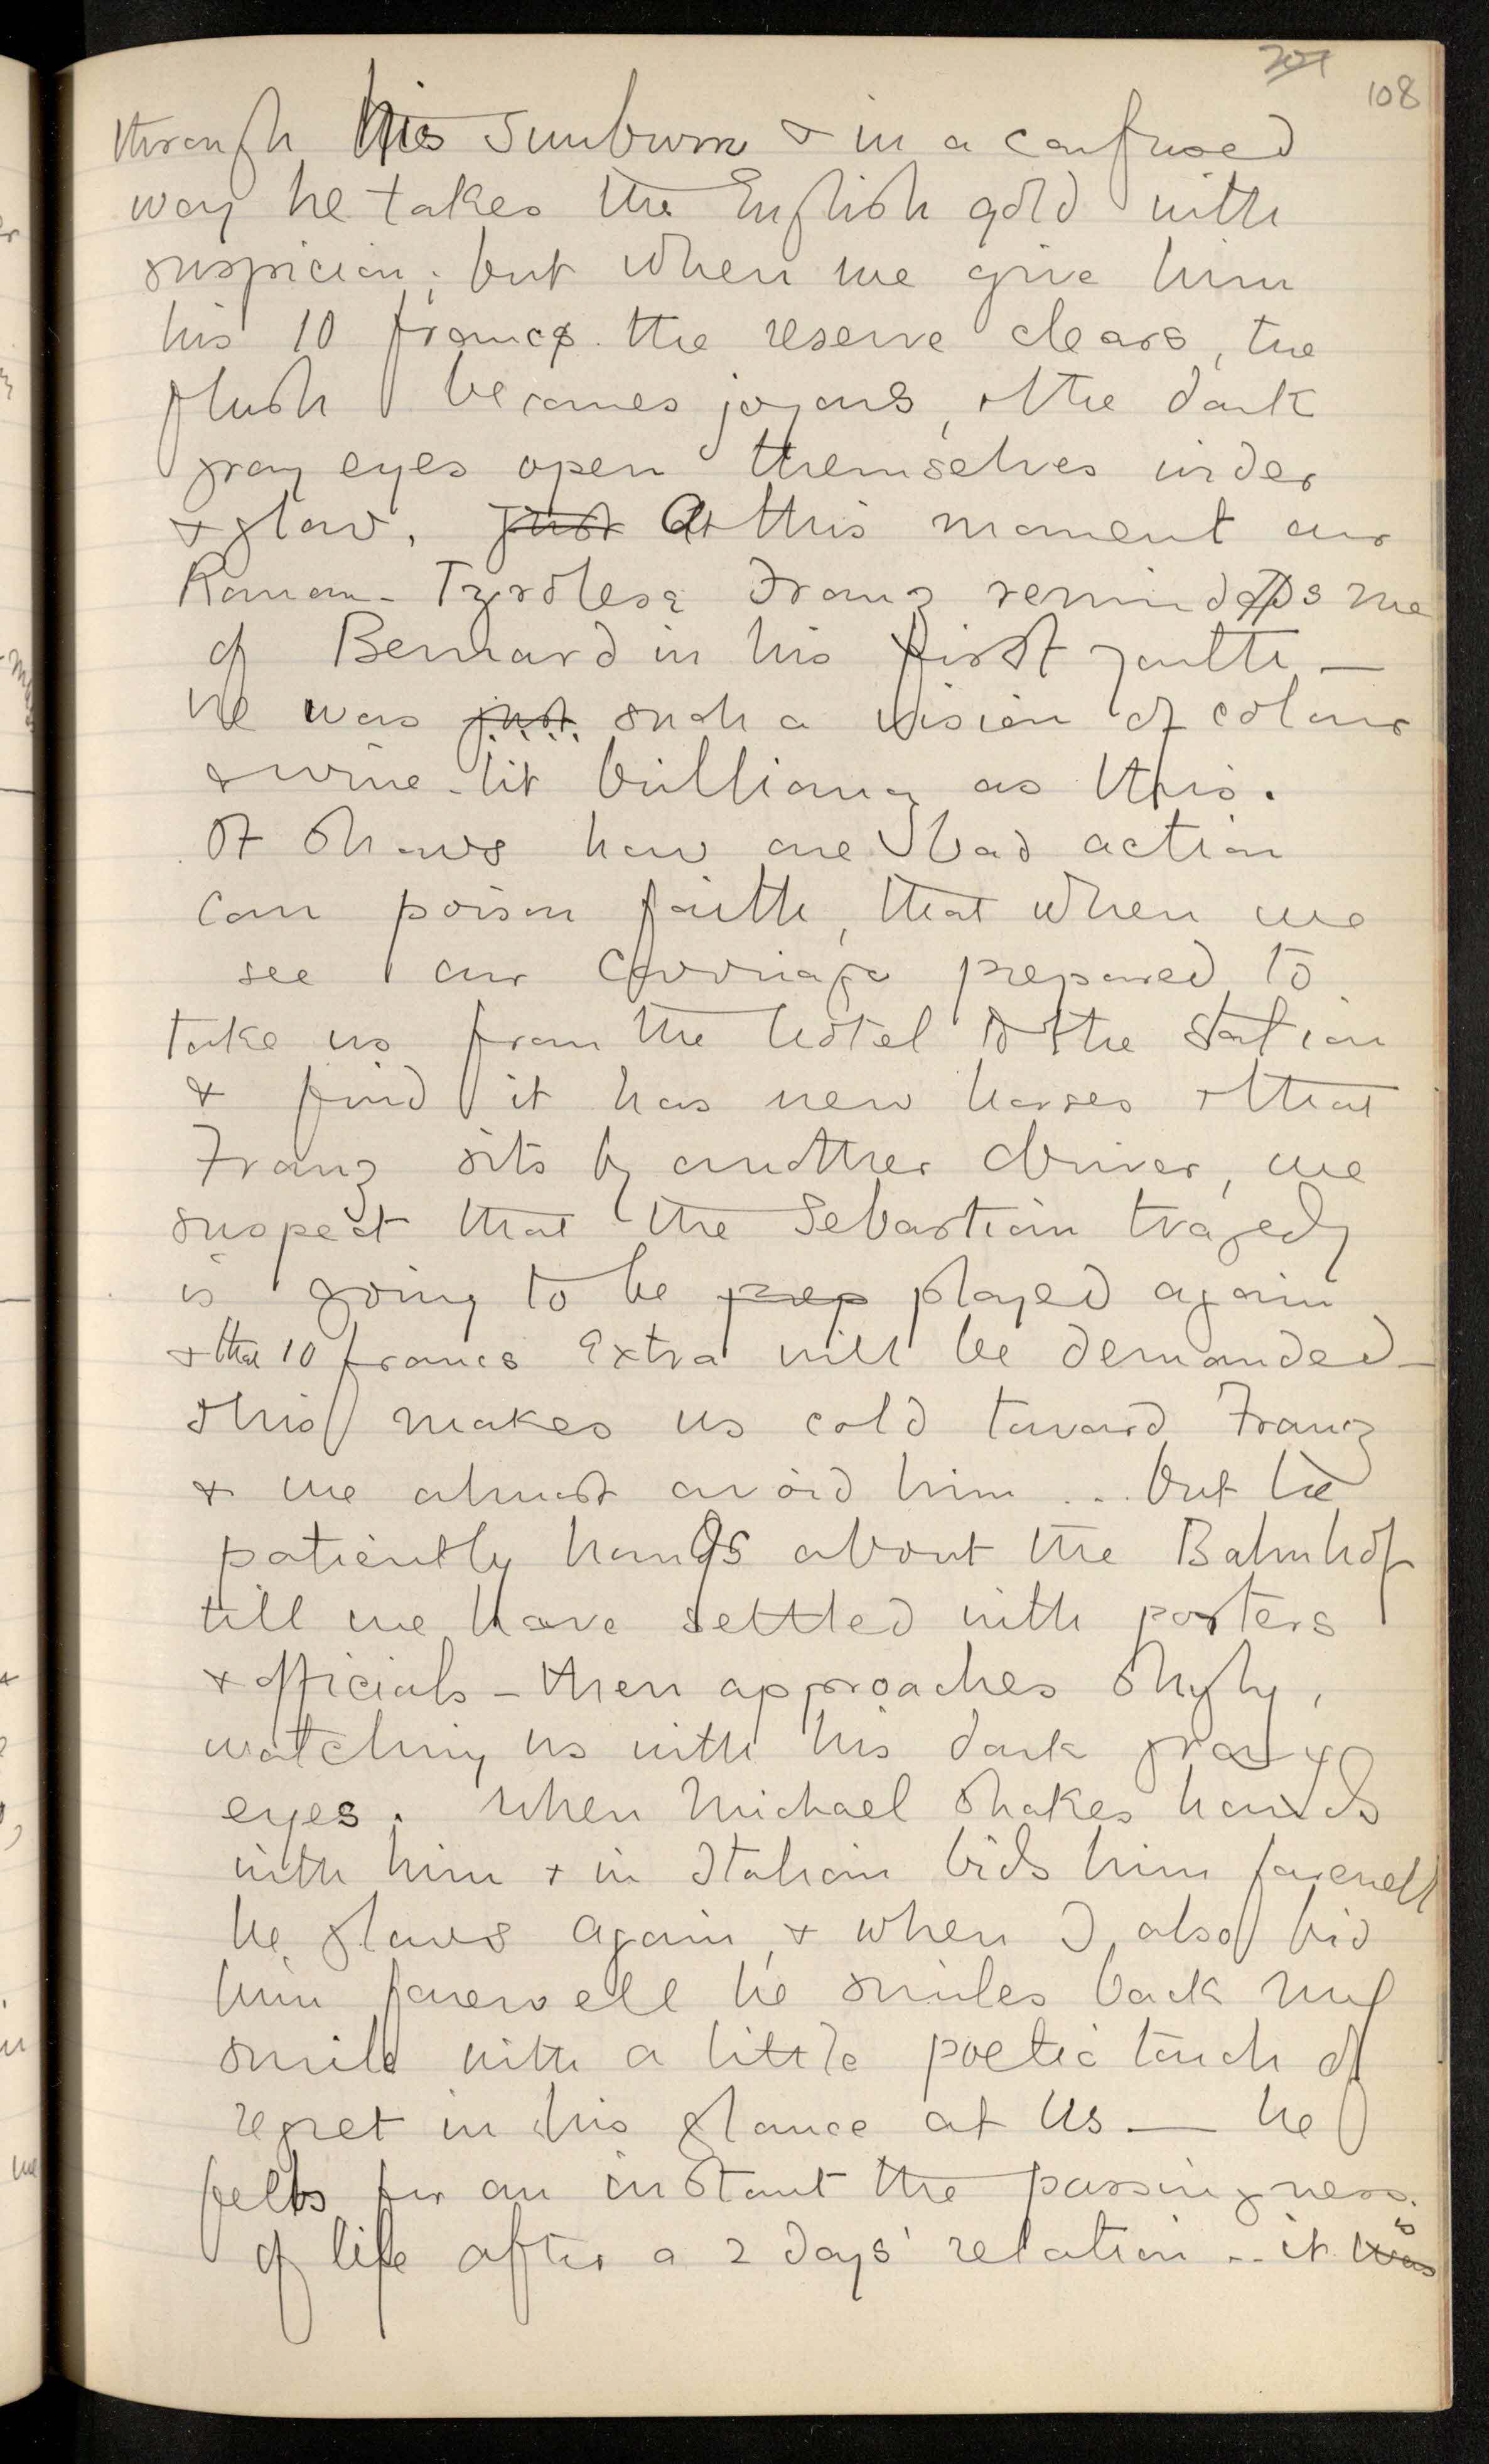 108
through his sunburn & in a confused
way he takes the English gold with
suspicion; but when we give him
his 10 francs the reserve clears, the
flush becomes joyous, & the dark
gray eyes open themselves wider
& glow. just At this moment our
Roman-Tyrolese Franz reminds me
of Bernard in his first youth —
he was just such a vision of colour
& wine-lit brilliancy as this.
It shows how one bad action
can poison faith, that when we
see our carriage prepared to
take us from the hotel to the station
& find it has new horses & that
Franz sits by another driver, we
suspect that the Sebastian tragedy
is going to be prep played again
& that 10 francs extra will be demanded —
this makes us cold toward Franz
& we almost avoid him ... but he
patiently hangs about the Bahnhof
till we have settled with porters
& officials — then approaches shyly,
watching us with his dark gray
eyes. When Michael shakes hands
with him & in Italian bids him farewell
he glows again, & when I also bid
him farewell he smiles back my
smile with a little poetic touch of
regret in his glance at us — he
feels for an instant the passingness
of life after a 2 days' relation .. it was is